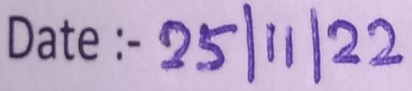 Date :- 25|11|22